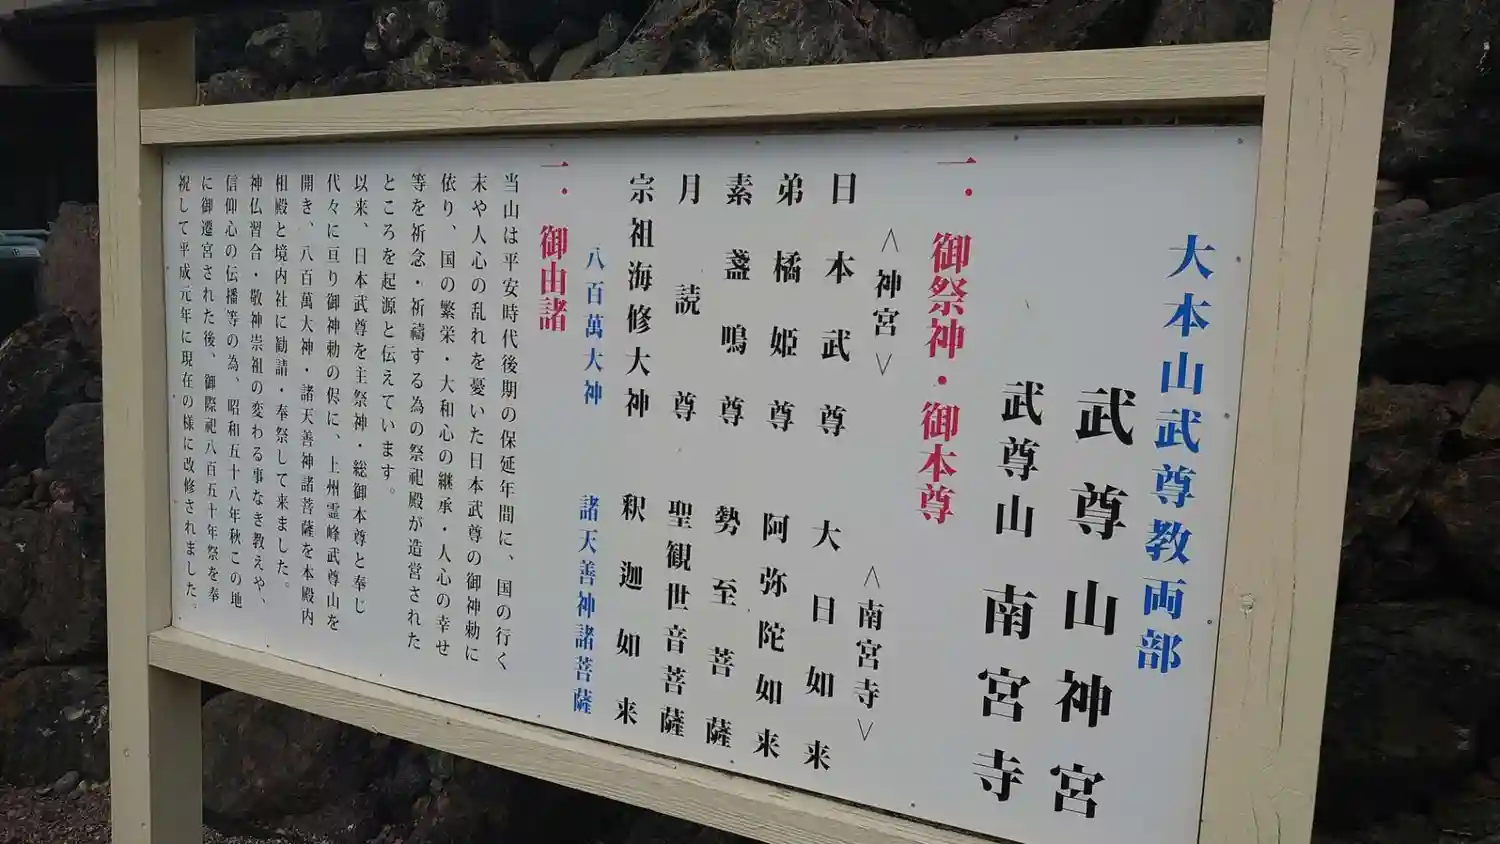 大本山武尊教両部
武尊山神宮
武尊山 南宮寺
一．御祭神・御本尊
＜神宮＞ ＜南宮寺＞
日本武尊 大日如来
弟橘姫尊 阿弥陀如来
素盞鳴尊 勢至菩薩
月読尊 聖観世音菩薩
宗祖海修大神 釈迦如来
八百萬大神 諸天善神諸菩薩
一．御由諸
当山は平安時代後期の保延年間に、国の行く
末や人心の乱れを憂いた日本武尊の御神勅に
依り、国の繁栄・大和心の継承・人心の幸せ
等を祈念・祈禱する為の祭祀殿が造営された
ところを起源と伝えています。
以来、日本武尊を主祭神・総御本尊と奉じ
代々に亘り御神勅の侭に、上州霊峰武尊山を
開き、八百萬大神・諸天善神諸菩薩を本殿内
相殿と境内社に勧請・奉祭して来ました。
神仏習合・敬神崇祖の変わる事なき教えや、
信仰心の伝播等の為、昭和五十八年秋この地
に御遷宮された後、御際祀八百五十年祭を奉
祝して平成元年に現在の様に改修されました。